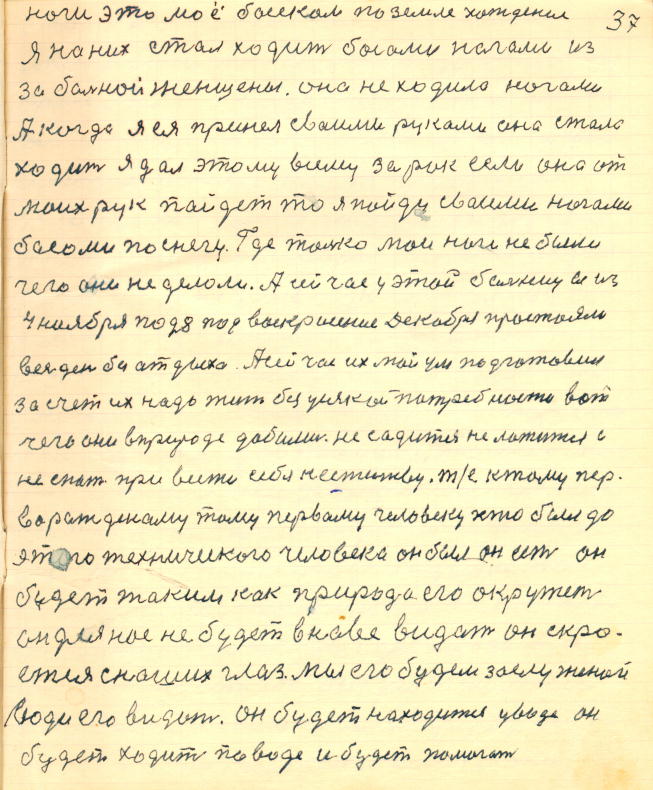 37
ноги это моё босяком по земле хождения
Я на них стал ходит босами нагами из
за болной женщены. она не ходила ногами
А когда я ея принел своими руками она стала
ходит я дал этому всему зарок если она от
моих рук пайдет то я пойду своими ногами
босоми по снегу. Где толко мои ноги не были
чего они не делоли. А сейчас у этой болхни и из
4 ноября под 8 под воскросение Декабря простояли
весь ден без атдыха. А сейчас их мой ум подготовил
за счет их надо жит без усякой патребности вот
чего они в природе добили. не садится не ложится и
не спат. привести себя к естиству. т/е. к тому пер.
вораждёному тому первому человеку хто был до
этого техничиского человека он был он ест он
будет таким как природа его окружет
он для нас не будет в нове видат он скро-
ется с наших глаз. мы его будем заслуженой
води его видат. он будет находится у воде он
будет ходит по воде и будет помогат